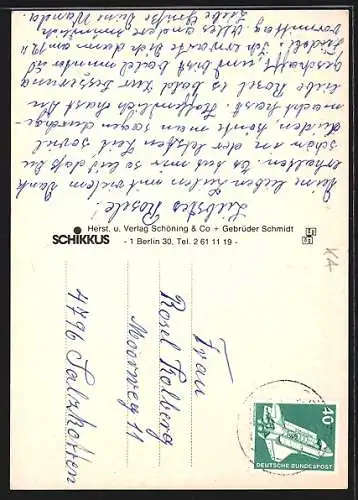 Liebstes Rosele!
Deine lieben Zeilen mit vielem Dank
erhalten. Es tut mir so leid daß Du
schon in der letzten Zeit soviel
Leiden konte man sagen durchge-
macht hast. Hoffentlich hast Du
liebe Rosel es bald zur Besserung
geschafft, und bist bald munter u.
Fidel! Ich erwarte Dich dann am 19.
vormittag. Alles andere mündlich
Liebe Grüße Deine Wanda.
SCHIKKUS
Herst. u. Verlag Schöning & Co + Gebrüder Schmidt
- 1 Berlin 30, Tel. 2 61 11 19 -
KA
Frau
Rosel Kolberg
Moorweg 11
4796 Salzkotten
40
DEUTSCHE BUNDESPOST